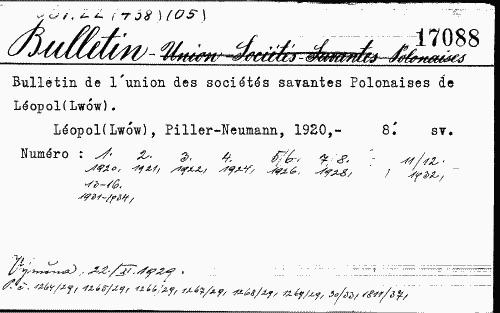 (438)(05)
17088
Bulletin - Union Sociétés Savantes Polonaises
Bulletin de l'union des sociétés savantes Polonaises de
Léopol(Lwów).
Léopol(Lwów), Piller-Neumann, 1920,- 8° sv.
Numéro : 1. 2. 3. 4. 5/6. 7-8. 11/12.
1920, 1921, 1922, 1924, 1926, 1928, , 1932,
13-16.
1931-1934,
Výměna. 22./XI. 1929.
P.č. 1264/29, 1265/29, 1266/29, 1267/29, 1268/29, 1269/29, 30/33, 1811/37,